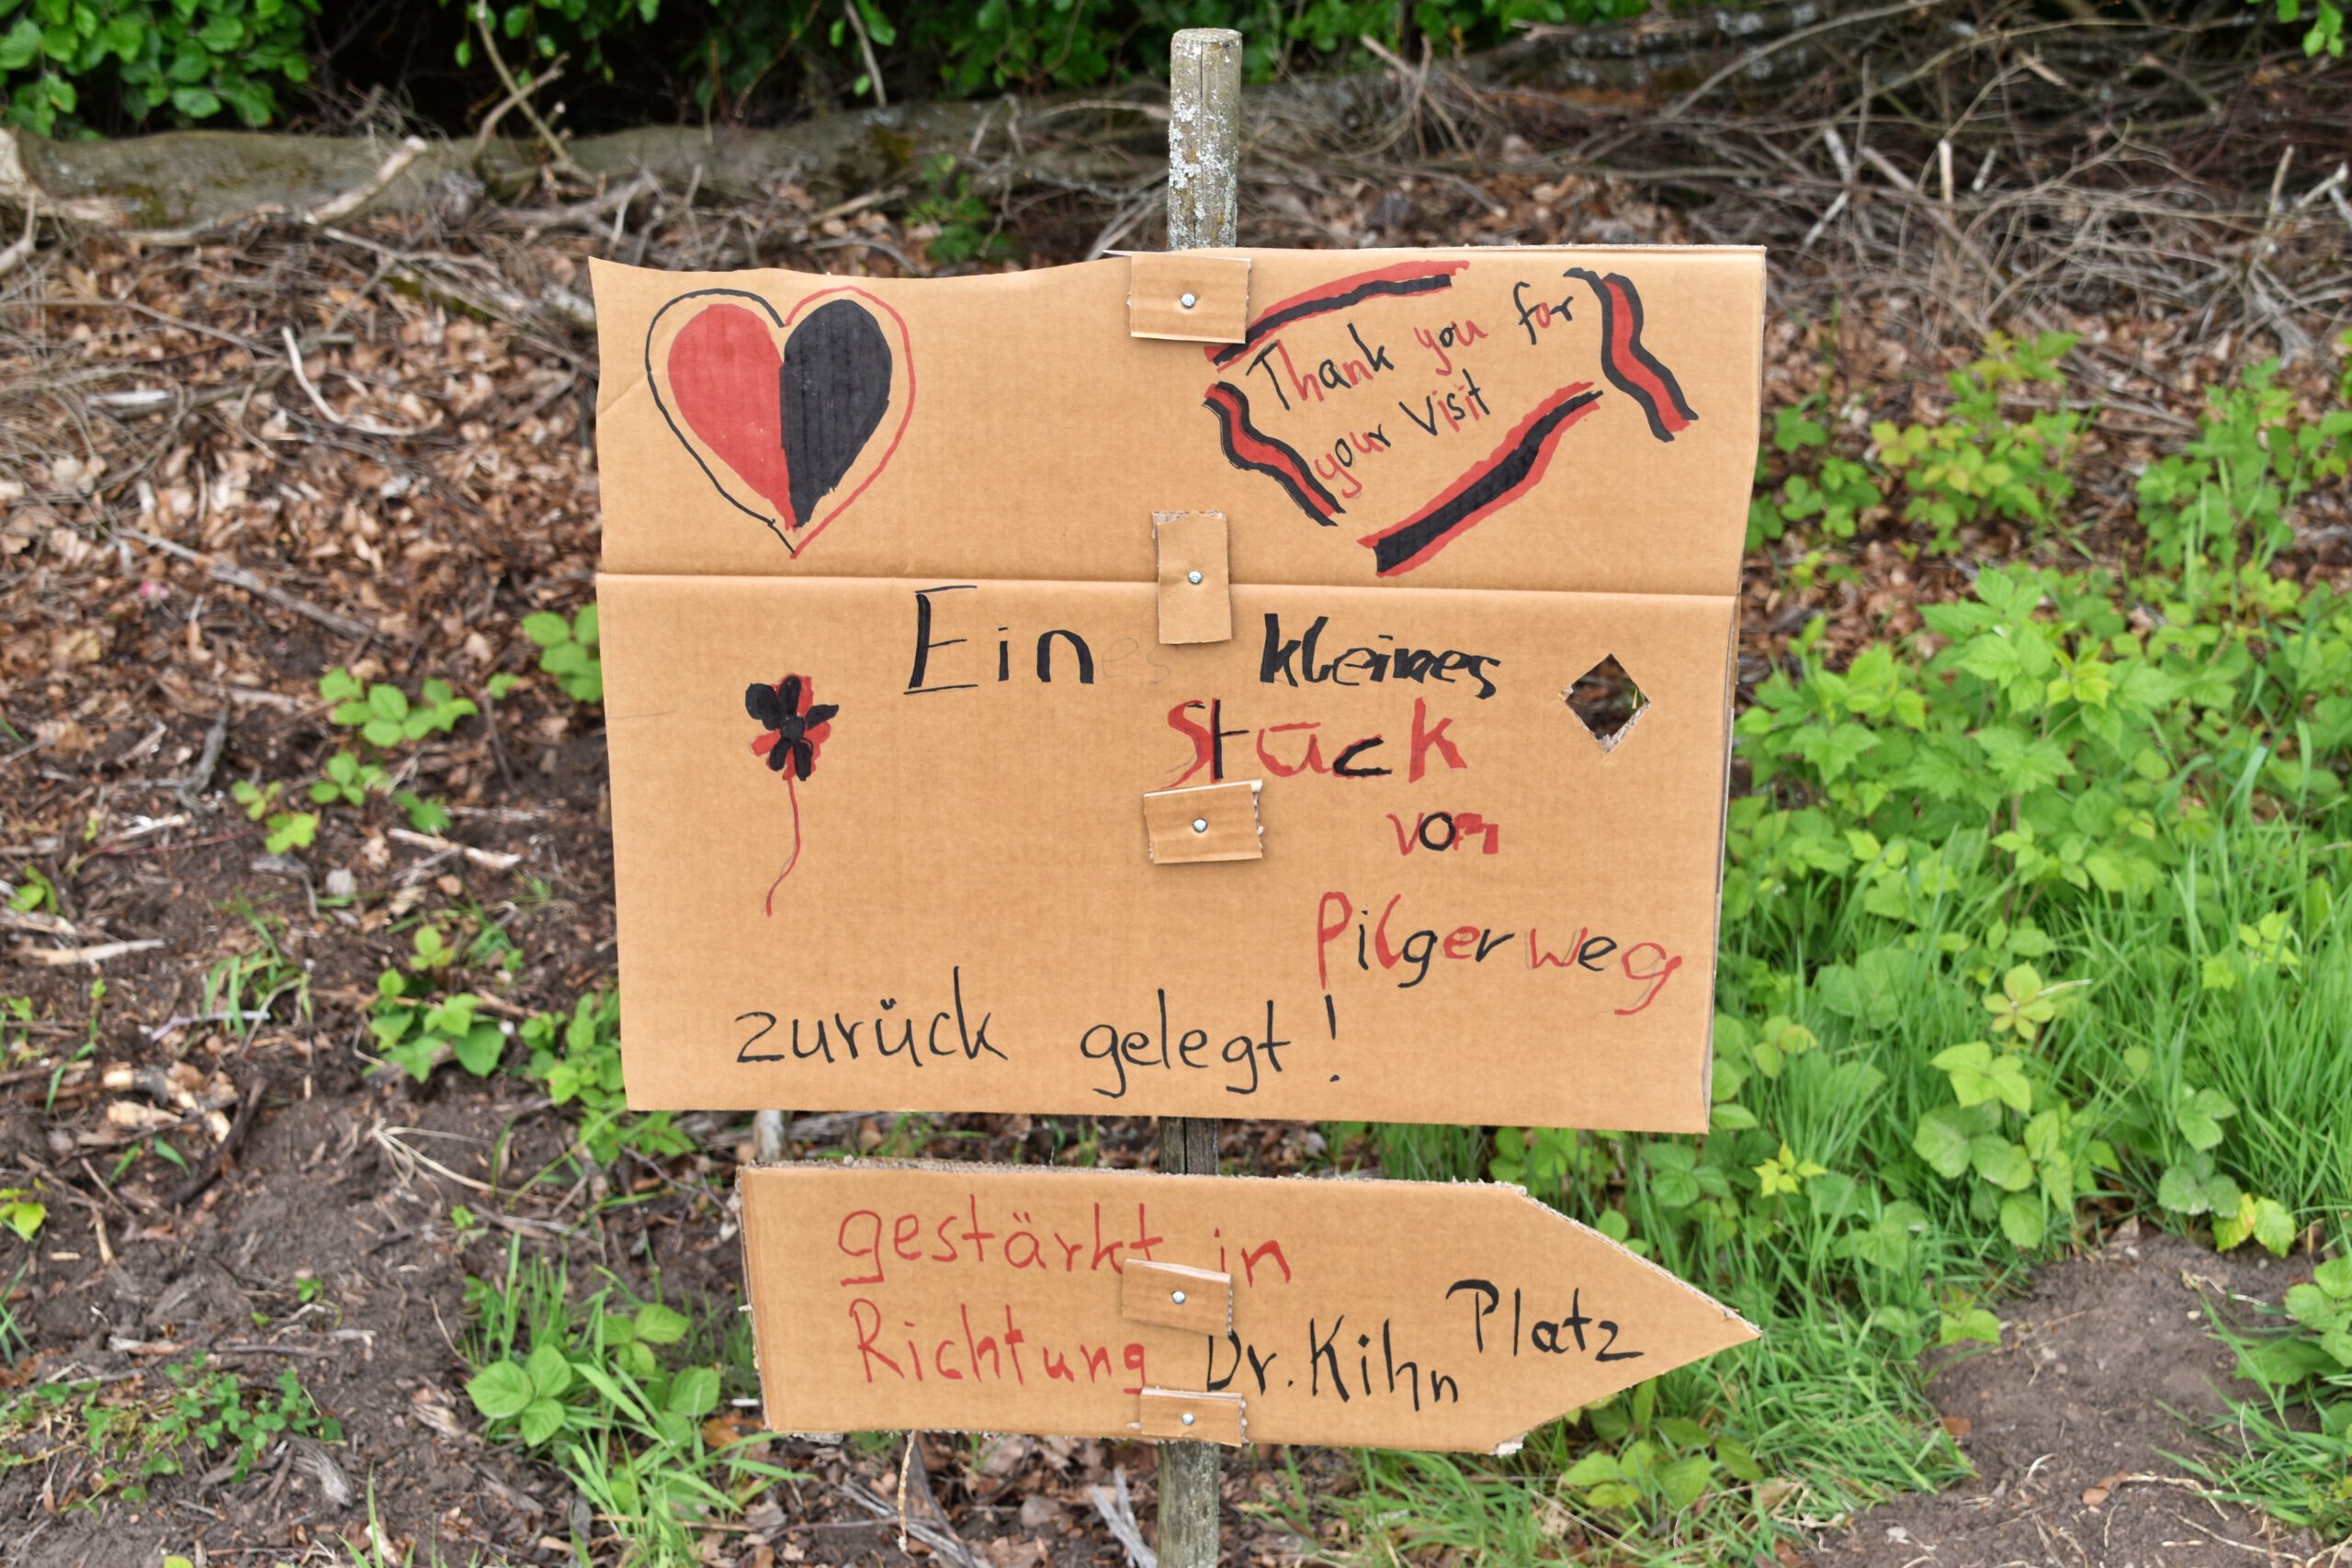 Thank you for
your Visit
Ein kleines
Stück
vom
Pilgerweg
zurück gelegt!
gestärkt in
Richtung Dr. Kihn Platz